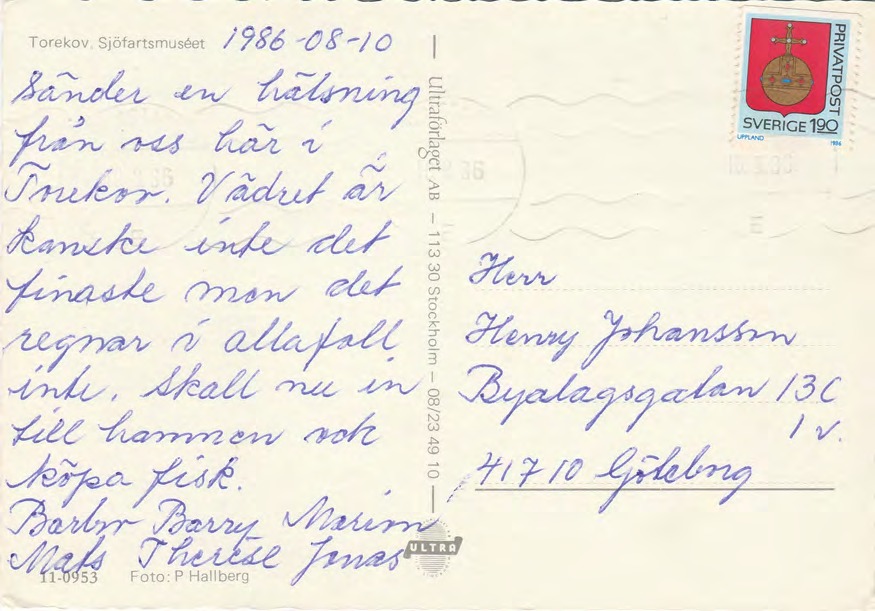 Torekov. Sjöfartsmuséet 1986-08-10
Sänder en hälsning
från oss här i
Torekov. Vädret är
kanske inte det
finaste men det
regnar i allafall
inte. Skall nu in
till hamnen och
köpa fisk.
Barbro Barry Marion
Mats Therese Jonas
11-0953 Foto: P Hallberg
Ultraförlaget AB – 113 30 Stockholm – 08/23 49 10
ULTRA
PRIVATPOST
SVERIGE 1.90
UPPLAND 1986
Herr
Henry Johansson
Byalagsgatan 13C
1 v.
41710 Göteborg